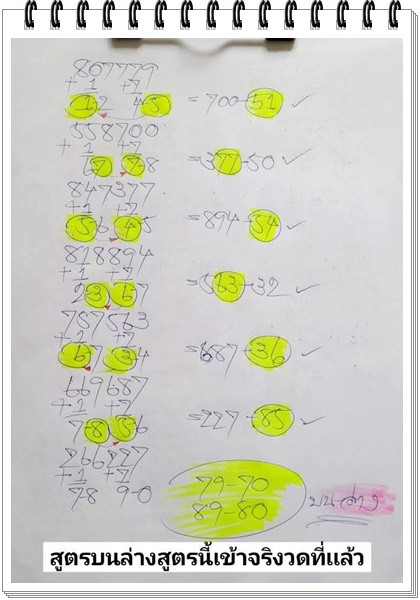 807779
+1 +7
12 45 =700-51 ✓
558700
+1 +7
67 78 =377-50 ✓
847377
+1 +7
56 45 =894-54 ✓
818894
+1 +7
23 67 =563-32 ✓
787563
+1 +7
67 34 =687-36 ✓
669687
+1 +7
78 56 =227-85 ✓
266227
+1 +7
78 9-0
79-70
89-80
บน-ล่าง
สูตรบนล่างสูตรนี้เข้าจริงวดที่แล้ว